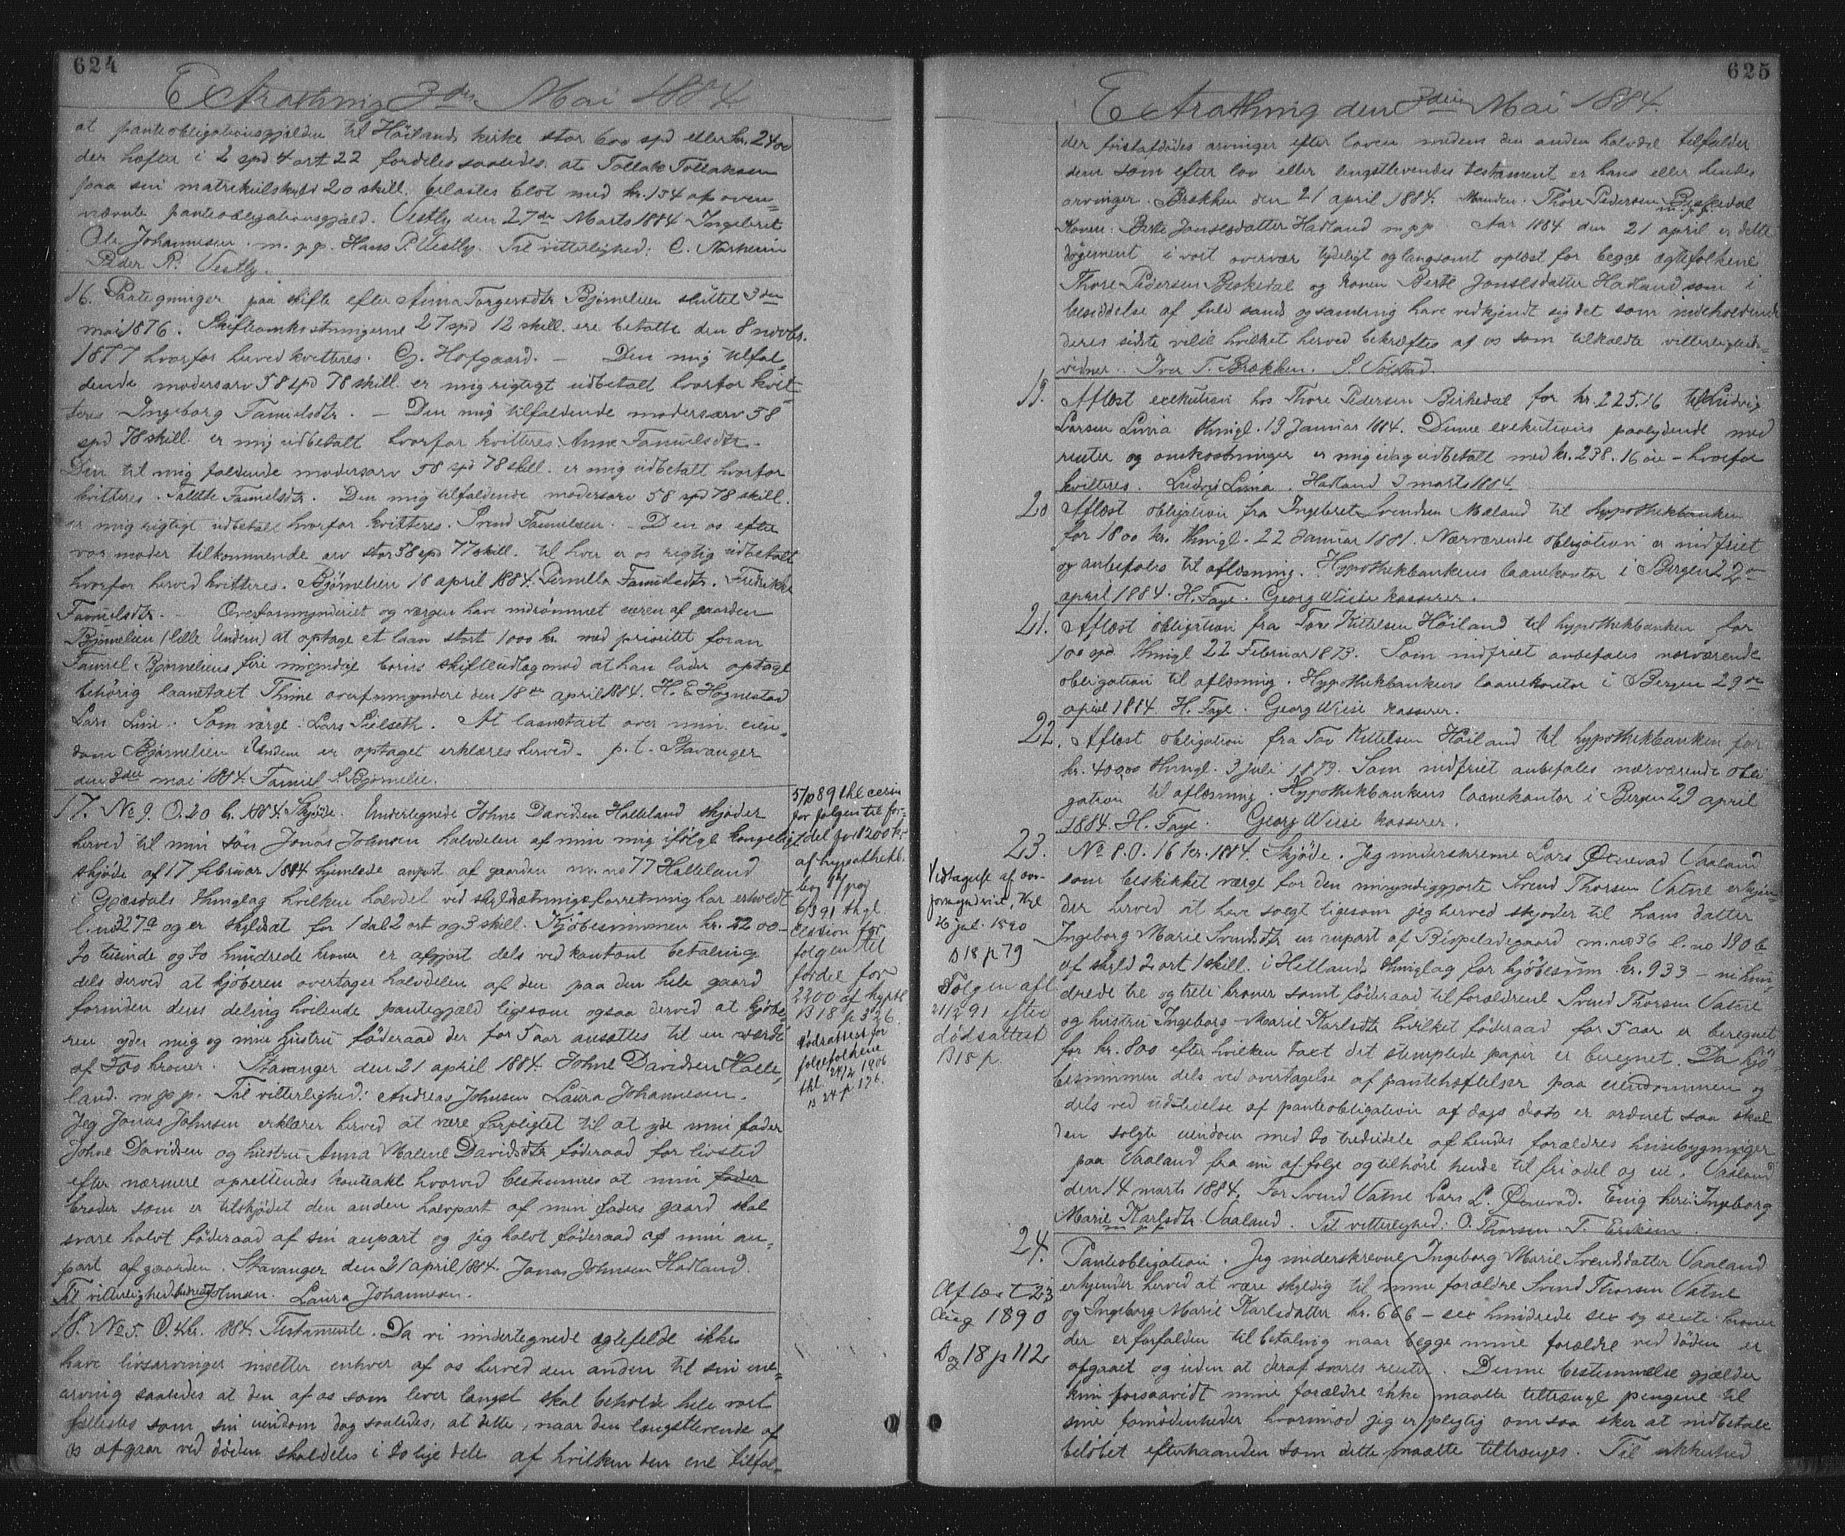 624
Extrathing 3die Mai 1884
at panteobligationsgjælden til Höilands kirke stor 600 spd eller kr. 2400
der hæfter i 2 spd 4 ort 22 fordeles saaledes at Tollak Tollaksen
paa sin matrikulskyld 20 skill. belastes blot med kr. 154 af oven-
nævnte panteobligationsgjæld. Vestly den 27de Marts 1884 Ingebret
Ole Johannesen. m.p.p. Hans P. Vestly. Til vitterlighed: C. Norheim
Peder R. Vestly.
16. Paategninger paa skifte efter Anna Torgersdtr Bjørnelien sluttet 3den
mai 1876. Skifteomkostningerne 27 spd 12 skill. ere betalte den 8 novbr.
1877 hvorfor herved kvitteres. G. Hofgaard. — Den mig tilfal-
dende modersarv 58 spd 78 skill er mig rigtigt udbetalt hvorfor kvit-
teres Ingeborg Tamielsdtr. — Den mig tilfaldende modersarv 58
spd 78 skill. er mig udbetalt hvorfor kvitteres Anne Tamielsdtr.
Den til mig faldende modersarv 58 spd 78 skill. er mig udbetalt hvorfor
kvitteres. Tamielsdtr. Den mig tilfaldende modersarv 58 spd 78 skill.
er mig rigtigt udbetalt hvorfor kvitteres. Svend Tamielsen. — Den os efter
vor moder tilkommende arv stor 58 spd 77 skill. til hver er os rigtig udbetalt
hvorfor herved kvitteres. Bjørnelien 18 april 1884. Pernille Tamielsdtr. Fredrikke
Tamielsdtr. — Overformynderiet og værgen have indrømmet eieren af gaarden
Bjørnelien (lille Undem) at optage et laan stort 1000 kr. med prioritet foran
Tamiel Bjørneliens fire myndige børns skifteudlæg mod at han lader optage
behörig laanetaxt Thime overformyndere den 18de april 1884. H. E Hognestad
Lars Line. Som værge: Lars Sælseth. At laanetaxt over min eien-
dom Bjørnelien Undem er optaget erklæres herved. p. t. Stavanger
den 3die mai 1884. Tamiel S. Bjørnelie.
17. No 9. O. 20 kr. 1884. Skjöde. Undertegnede Johne Davidsen Halleland skjöder
herved til min sön Jonas Johnsen halvdelen af min mig ifölge kongelig
skjöde af 17 februar 1884 hjemlede anpart af gaarden m. no 77 Halleland
i Gjæsdals thinglag hvilken halvdel ved skyldsætningsforretning har erholdt
l. no 327a og er skyldsat for 1 dal 2 ort og 3 skill. Kjöbesummen kr. 2200 —
to tusinde og to hundrede kroner er afgjort dels ved kontant betaling
dels derved at kjöberen overtager halvdelen af den paa den hele gaard
forinden dens deling hvilende pantegjæld ligesom ogsaa derved at kjöbe-
ren yder mig og min hustru föderaad der for 5 aar ansættes til en værdi
af 500 kroner. Stavanger den 21 april 1884. Johne Davidsen Halle-
land. m.p.p. Til vitterlighed: Andreas Johnsen Laura Johannesen.
Jeg Jonas Johnsen erklærer herved at være forpligtet til at yde min fader
Johne Davidsen og hustru Anna Malene Davidsdtr föderaad for livstid
efter nærmere oprettendes kontrakt hvorved bestemmes at min fader
broder som er tilskjödet den anden halvpart af min faders gaard skal
svare halvt föderaad af sin anpart og jeg halvt föderaad af min an-
part af gaarden. Stavanger den 21 april 1884. Jonas Johnsen Hadland.
Til vitterlighed Andreas Johnsen. Laura Johannesen.
18. No 5. O. 4 kr. 1884. Testamente. Da vi undertegnede ægtefolk ikke
have livsarvinger indsetter enhver af os herved den anden til sin ene-
arving saaledes at den af os som lever længst skal beholde hele vort
fælledes som sin eiendom dog saaledes, at dette, naar den længstlevende af
os afgaar ved döden skal deles i to lige dele af hvilken den ene tilfal-
5/10 89 thl cession
for følgen til for-
del for 1200 kr
af hypothekb.
6/3 91 thgl
Cession for
følgen til
fordel for
2200 af hypbk
B 18 p 326
Dødsattest for
følgefolkene
thl 24/2 1906
B 24 p 126.
625
Extrathing den 3die Mai 1884.
der förstafdödes arvinger efter loven medens den anden halvdel tilfalder
dem som efter lov eller længstlevendes testament er hans eller hendes
arvinger. Brækken den 21 april 1884. Manden: Thore Pedersen Birkedal
m.p.p.
Konen: Berte Jonselsdatter Hadland m.p.p. Aar 1884 den 21 april er dette
dogument i vort overvær tydeligt og langsomt oplæst for begge ægtefolkene
Thore Pedersen Birkedal og konen Berte Jonselsdatter Hadland som i
besiddelse af fuld sands og samling have vedkjendt sig det som indeholdende
deres sidste vilie hvilket herved bekræftes af os som tilkaldte vitterligheds-
vidner. Iver T. Brækken. S. Solstad.
19. Aflæst exekution hos Thore Pedersen Birkedal for kr. 225.16 til Ludvig
Larsen Lima thingl. 19 Januar 1884. Denne exekutions paalydende med
renter og omkostninger er mig idag udbetalt med kr. 238.16 öre — hvorfor
kvitteres. Ludvig Lima. Hadland 3 marts 1884.
20 Aflæst obligation fra Ingebret Svendsen Mæland til hypothekbanken
for 1800 kr. thingl. 22 Januar 1881. Nærværende obligation er indfriet
og anbefales til aflæsning. Hypothekbankens laanekontor i Bergen 22de
april 1884. H. Faye. Georg Wiese kasserer.
21. Aflæst obligation fra Tov Kittelsen Höiland til hypothekbanken for
100 spd thingl 22 Februar 1873. Som indfriet anbefales nærværende
obligation til aflæsning. Hypothekbankens laanekontor i Bergen 29de
april 1884. H. Faye. Georg Wiese kasserer.
22. Aflæst obligation fra Tov Kittelsen Höiland til hypothekbanken for
kr. 400,00 thingl. 3 juli 1879. Som indfriet anbefales nærværende obli
gation til aflæsning. Hypothekbankens laanekontor i Bergen 29 april
1884. H. Faye. Georg Wiese kasserer.
23. No 8. O. 16 kr. 1884. Skjöde. Jeg underskrevne Lars Ørnevad Vaaland
som beskikket værge for den umyndiggjorte Svend Thorsen Vatne erkjen-
der herved at have solgt ligesom jeg herved skjöder til hans datter
Ingeborg Marie Svendsdtr en anpart af Bispeladegaard m. no 36 l. no 190 b
af skyld 2 ort 1 skill. i Hetlands thinglag for kjöbesum kr. 933 — ni hun-
drede tre og treti kroner samt föderaad til forældrene Svend Thorsen Vatne
og hustru Ingeborg Marie Karlsdtr hvilket föderaad for 5 aar er beregnet
for kr. 800 efter hvilken taxt det stemplede papir er beregnet. Da kjö-
besummen dels ved overtagelse af pantehæftelser paa eiendommen og
dels ved udstedelse af panteobligation af dags dato er ordnet saa skal
den solgte eiendom med to trediedele af hendes forældres husebygninger
paa Vaaland fra nu af følge og tilhöre hende til fri odel og eie. Vaaland
den 14 marts 1884. For Svend Vatne Lars L. Ørnevad. Enig heri: Ingeborg
Marie Karlsdtr Vaaland. Til vitterlighed: O. Thorsen. T. Eriksen.
m p p
24. Panteobligation. Jeg underskrevne Ingeborg Marie Svendsdatter Vaaland
erkjender herved at være skyldig til mine forældre Svend Thorsen Vatne
og Ingeborg Marie Karlsdatter kr. 666 — sex hundrede sex og sexti kroner
der er forfalden til betaling naar begge mine forældre ved döden er
afgaaet og uden at deraf svares renter. Denne bestemmelse gjælder
kun forsaavidt mine forældre ikke maatte tiltrænge pengene til
sine fornödenheder hvorimod jeg er pligtig om saa sker at indbetale
belöbet efterhaanden som dette maatte tiltrænges. Til sikkerhed
Vidtagelse af ov-
formynderiet, thgl
26 jul. 1890
B 18 p 79
Følgen afl
21/2 91 efter
dødsattest
B 18 p.
Aflæst 23
Aug 1890
Bog 18 p 112